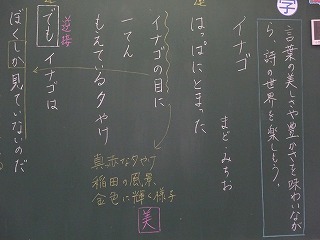 学
言葉の美しさや豊かさを味わいなが
ら、詩の世界を楽しもう。
イナゴ
まど・みちお
はっぱにとまった
イナゴの目に
一てん
もえている夕やけ
真赤な夕やけ
稲田の風景
金色に輝く様子
美
逆接
でも イナゴは
ぼくしか見ていないのだ